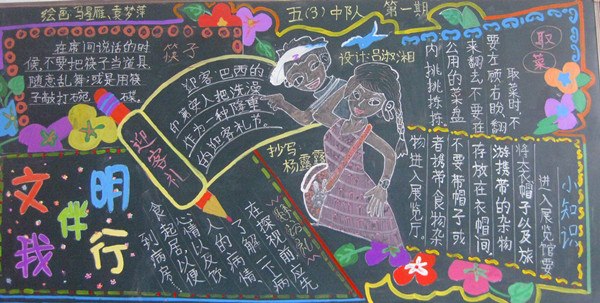 绘画:马
袁梦萍
五(3)中队
第一期
设计:吕淑湘
抄写
杨露露
筷子
在席间说话的时
候,不要把筷子当道具,
随意乱舞;或是用筷
子敲打碗、碟。
迎客礼
迎客:巴西的
印第安人把洗澡
作为一种隆重
的迎客礼节。
取菜
取菜时,不
要左顾右盼,翻
来翻去,不要在
公用的菜盘
内挑挑拣拣。
文明伴我行
在探视前应先
了解一下病
人的病情、
心情以及饮
食起居以便
到病房
小知识
进入展览馆要
将大衣帽子以及旅
游携带的杂物
存放在衣帽间
不要带帽子或
者携带食物杂
物进入展览厅。